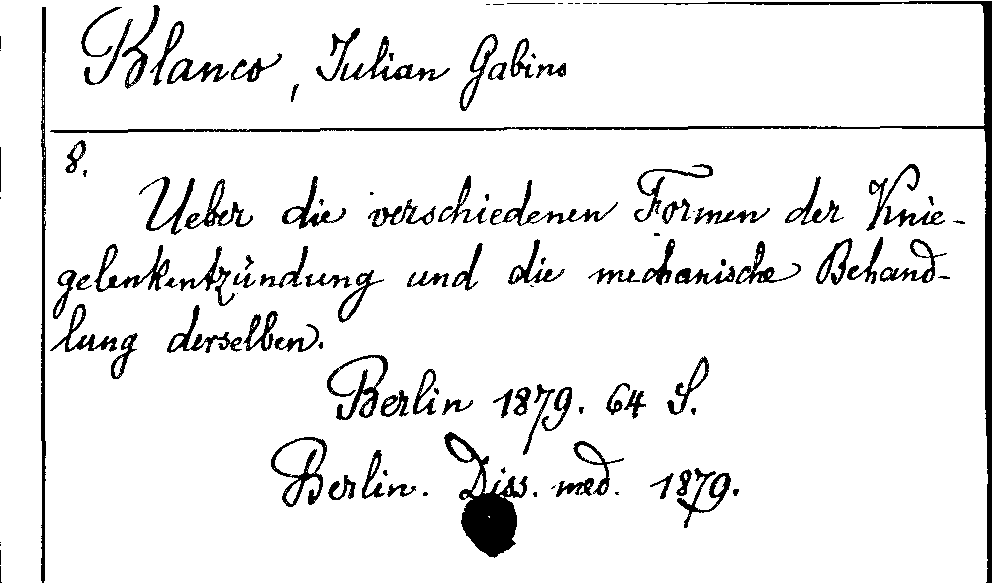 Blanco, Julian Gabino
8.
Ueber die verschiedenen Formen der Knie-
gelenkentzündung und die mechanische Behand-
lung derselben.
Berlin 1879. 64 S.
Berlin. Diss. med. 1879.